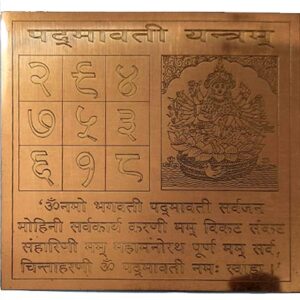 पद्मावती यन्त्रम्
२ ९ ४
७ ५ ३
६ १ ८
ॐनमो भगवती पद्मावती सर्वजन
मोहिनी सर्वकार्य करणी मम् विकट संकट
संहारिणी मम् महामनोरथ पूर्ण मम् सर्व,
चिन्ताहरणी ॐ पद्मावती नमः स्वाहा।